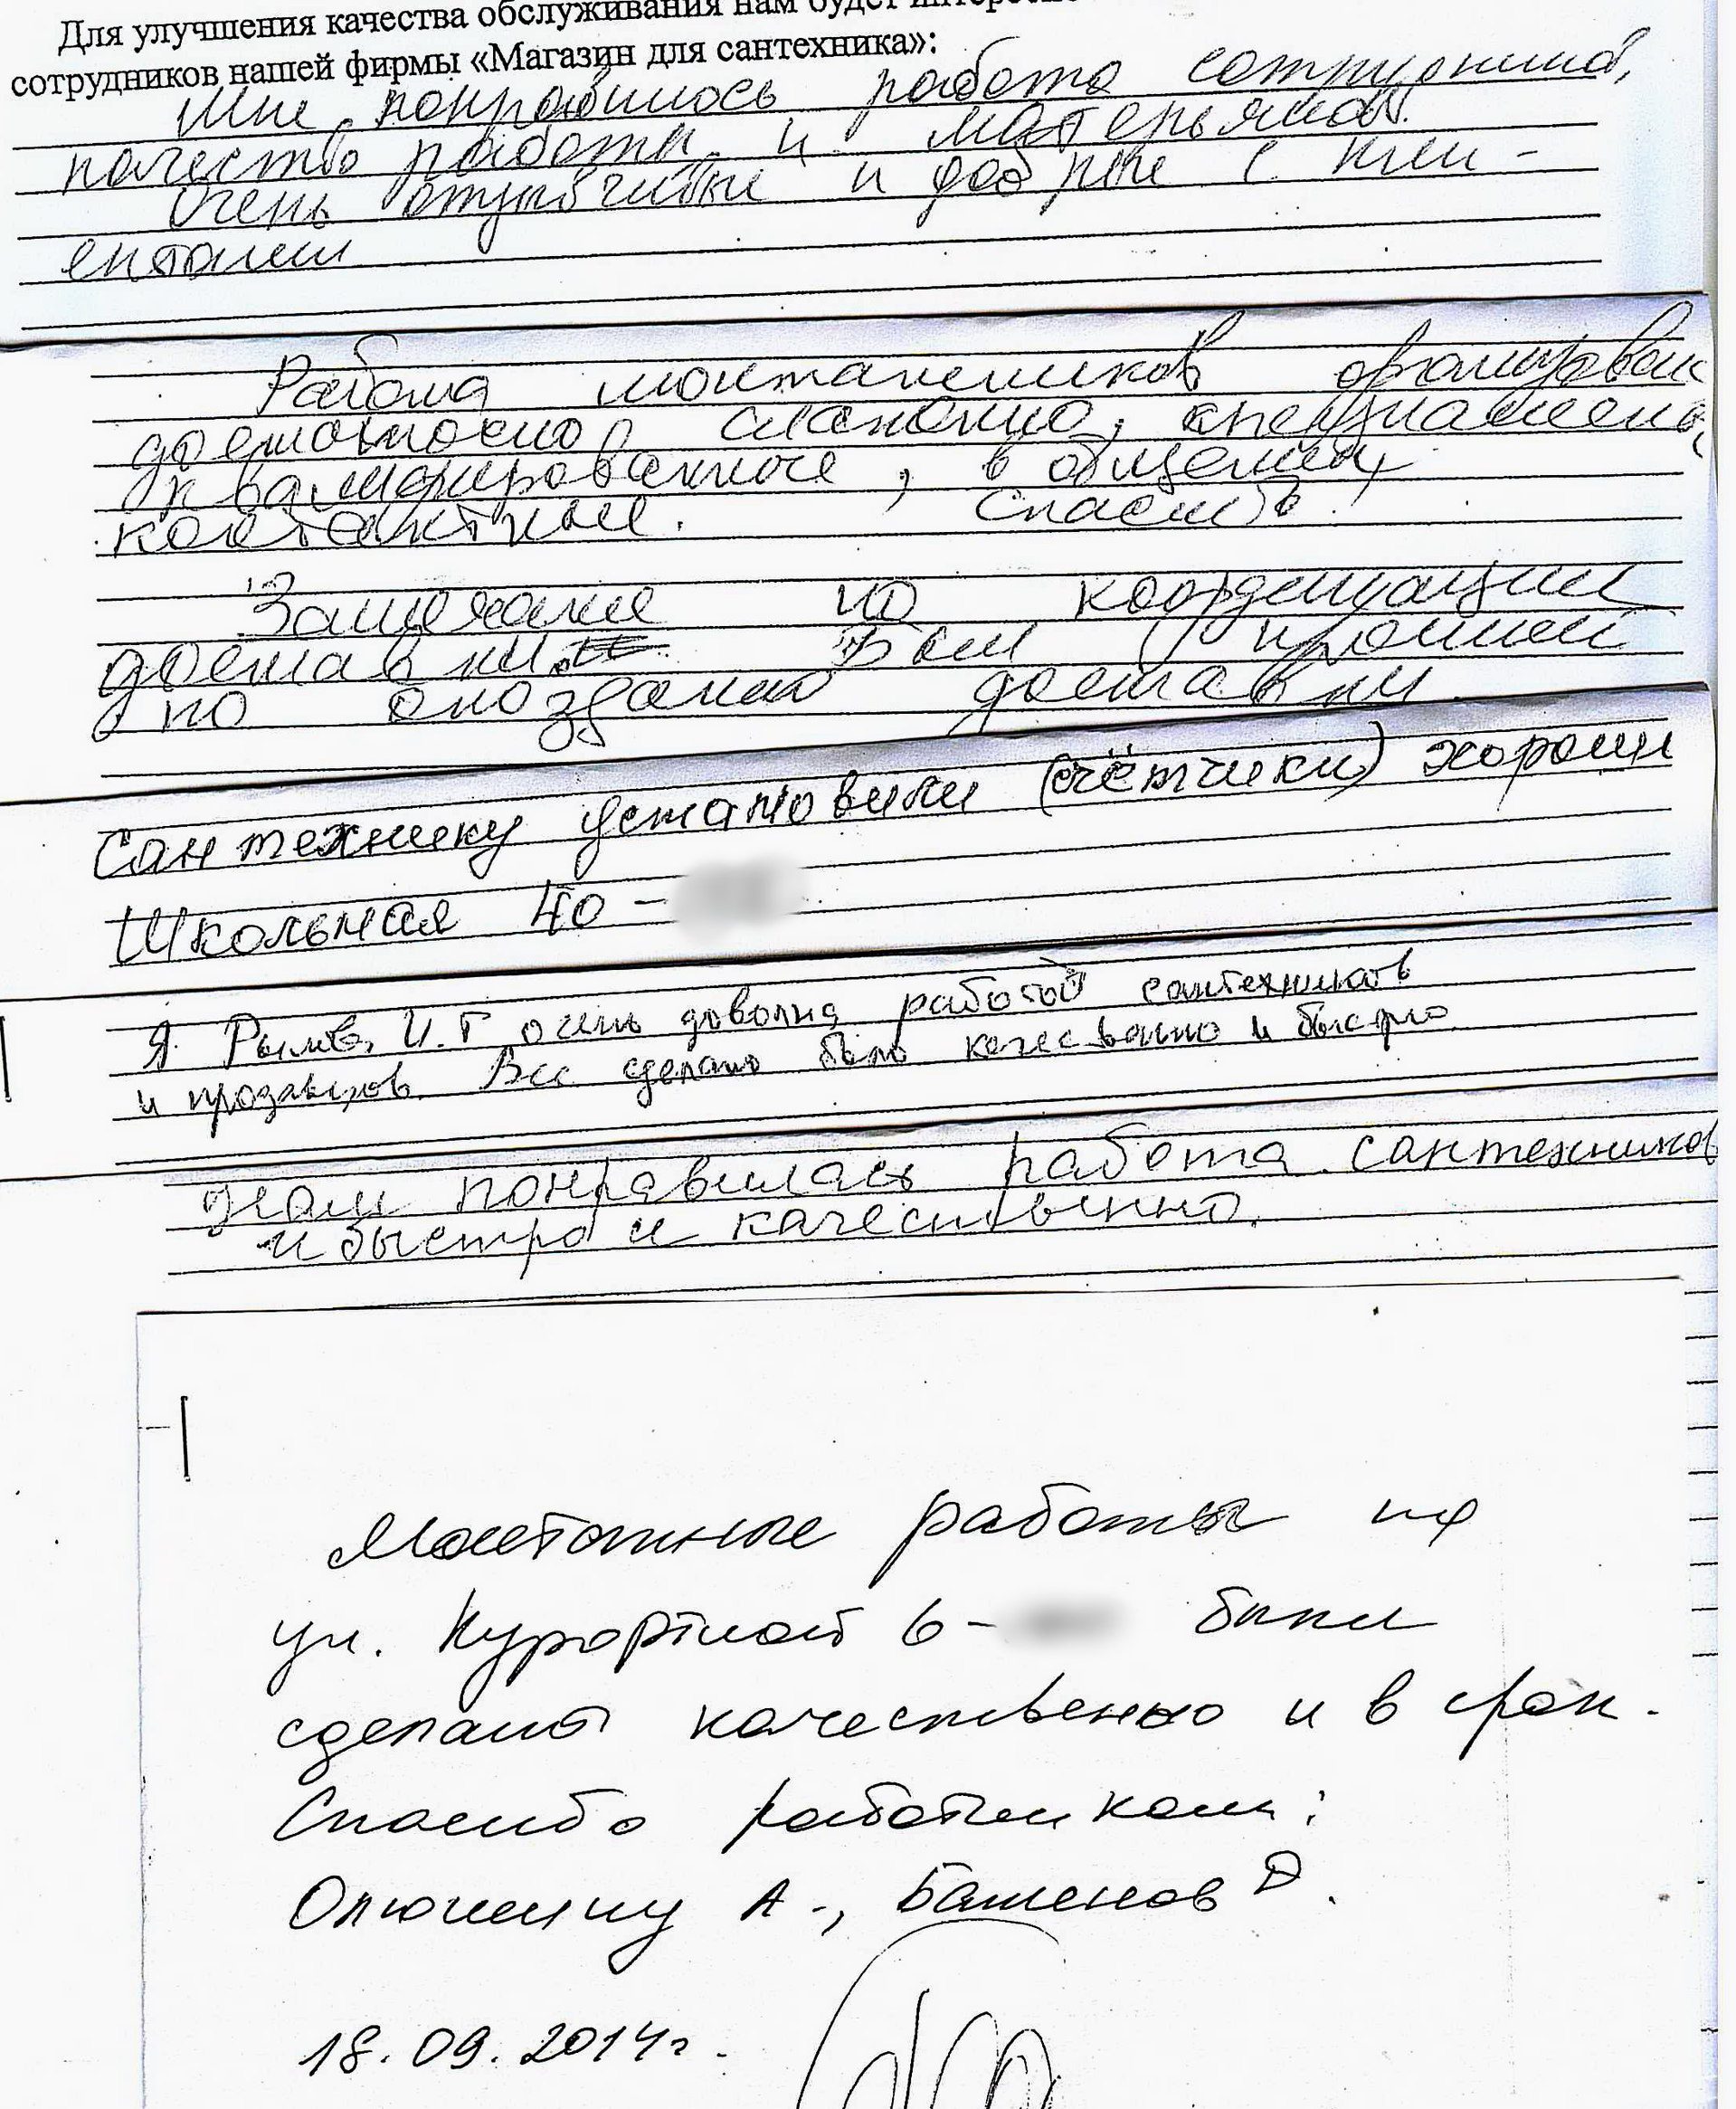 Для улучшения качества обслуживания нам будет
сотрудников нашей фирмы «Магазин для сантехника»:
Мне понравилось работа сотрудников,
качество работы и матерьялов.
Очень отзывчивые и добрые с кли-
ентами
Работа монтажников организован
достаточно слаженно, специалисты
квалифицированные, в общении
контактные. Спасибо!
Замечание по координации
доставки. Был промах
по опозданию доставки.
Сантехнику установили (счётчики) хорошо
Школьная 40 -
Я И.Г очень довольна работой сантехников
и продавцов. Все сделано было качественно и быстро
Нам понравилась работа сантехников
и быстро и качественно.
Монтажные работы по
ул. Курортной 6 - были
сделаны качественно и в срок.
Спасибо работникам:
А., Баженов Д.
18.09.2014г.